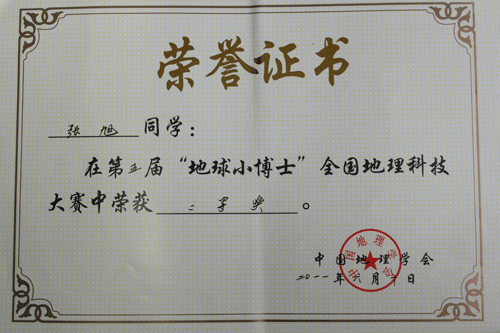 荣誉证书
张旭同学:
在第五届“地球小博士”全国地理科技
大赛中荣获二等奖。
中国地理学会
二〇一一年六月十日
中国地理学会